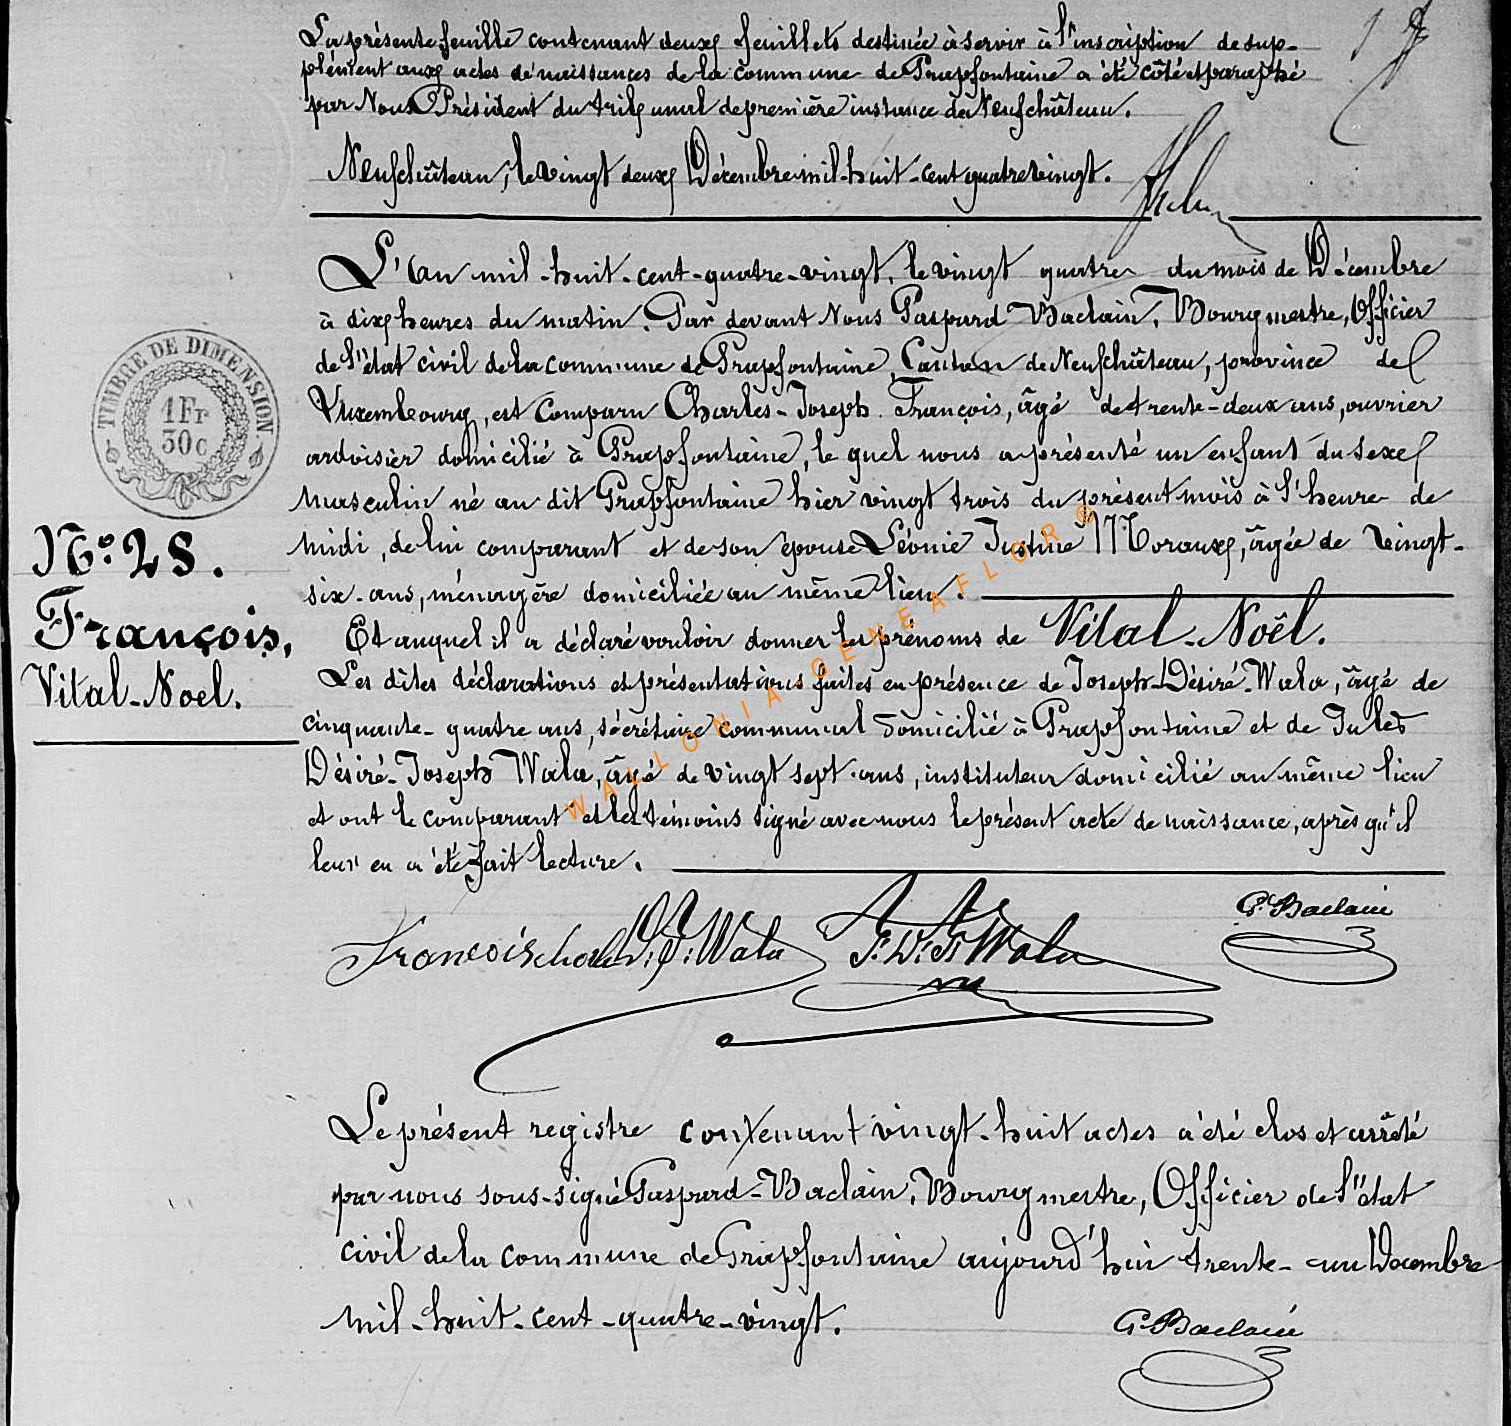 La présente feuille contenant deux feuillets destinée à servir à l'inscription de sup-
plément aux actes de naissances de la commune de Grapfontaine a été côté et paraphé
par Nous Président du tribunal de première instance de Neufchâteau.
Neufchâteau, le vingt deux Décembre mil-huit-cent quatre vingt.
L'an mil-huit-cent-quatre-vingt, le vingt quatre du mois de Décembre
à dix heures du matin. Par devant Nous Gaspard Baclain, Bourgmestre, Officier
de l'état civil de la commune de Grapfontaine, Canton de Neufchâteau, province de
Luxembourg, est comparu Charles-Joseph François, âgé de trente-deux ans, ouvrier
ardoisier domicilié à Grapfontaine, le quel nous a présenté un enfant du sexe
masculin né au dit Grapfontaine hier vingt trois du présent mois à l'heure de
midi, de lui comparant et de son épouse Léonie Justine Moraux, âgée de vingt-
six-ans, ménagère domiciliée au même lieu.
Et auquel il a déclaré vouloir donner les prénoms de Vital-Noël.
Les dites déclarations et présentations faites en présence de Joseph-Désiré-Wala, âgé de
cinquante-quatre ans, sécrétaire communal domicilié à Grapfontaine et de Jules
Désiré-Joseph Wala, âgé de vingt sept-ans, instituteur domicilié au même lieu
et ont le comparant et les témoins signé avec nous le présent acte de naissance, après qu'il
leur en a été fait lecture.
TIMBRE DE DIMENSION
1 Fr
30 c
N°. 28.
François,
Vital-Noel.
WALLONIA-GENEAFLOR ©
François charles J. D. Wala J. D. J. Wala G. Baclain
Le présent registre contenant vingt-huit actes a été clos et arrêté
par nous sous-signé Gaspard-Baclain, Bourgmestre, Officier de l'état
civil de la commune de Grapfontaine aujourd'hui trente-un Décembre
mil-huit-cent-quatre-vingt.
G. Baclain